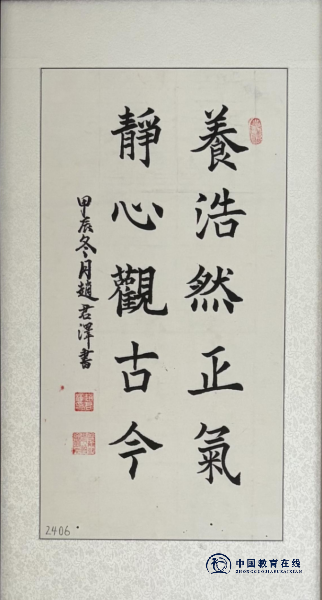 養浩然正氣
靜心觀古今
甲辰冬月趙君澤書
2406
中国教育在线